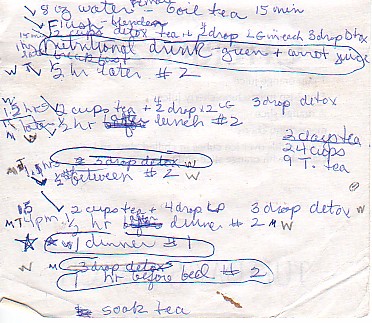 8 oz water - boil tea 15 min
Finish - blender
2 cups detox tea + 4 drop LG in each 3 drop Dtox
nutritional drink - green + carrot juice
W T 1/2 hr later # 2
1 1/2 hrs 2 cups tea + 4 drop x 2 LG 3 drop detox
1/2 hr lunch # 2
2 days tea
24 cups
9 T. tea
3 drop detox W
between # 2 W
2 cups tea + 4 drop 3 drop detox W
M T 4pm 1/2 hr dinner # 2 M W
w/ dinner # 1
W 3 drop detox
W 1 hr before bed # 2
soak tea